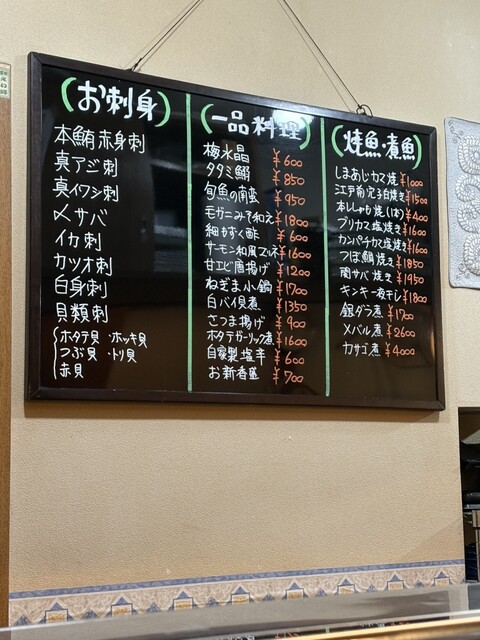 (お刺身)
本鮪赤身刺
真アジ刺
真イワシ刺
〆サバ
イカ刺
カツオ刺
白身刺
貝類刺
ホタテ貝・ホッキ貝
つぶ貝・トリ貝
赤貝
(一品料理)
梅水晶 ¥600
タタミ鰯 ¥850
旬魚の南蛮 ¥950
毛ガニみそ和え ¥1800
細もずく酢 ¥600
サーモン和風マリネ ¥1600
甘エビ唐揚げ ¥1200
ねぎま小鍋 ¥1700
白バイ貝煮 ¥1350
さつま揚げ ¥900
ホタテガーリック煮 ¥1600
自家製塩辛 ¥600
お新香盛 ¥700
(焼魚・煮魚)
しまあじカマ焼 ¥1000
江戸前穴子白焼き ¥1500
本ししゃも焼(1本) ¥400
ブリカマ塩焼き ¥1600
カンパチカマ塩焼き ¥1600
つぼ鯛焼き ¥1850
関サバ焼き ¥1950
キンキ一夜干し ¥1800
銀ダラ煮 ¥1700
メバル煮 ¥2600
カサゴ煮 ¥4000